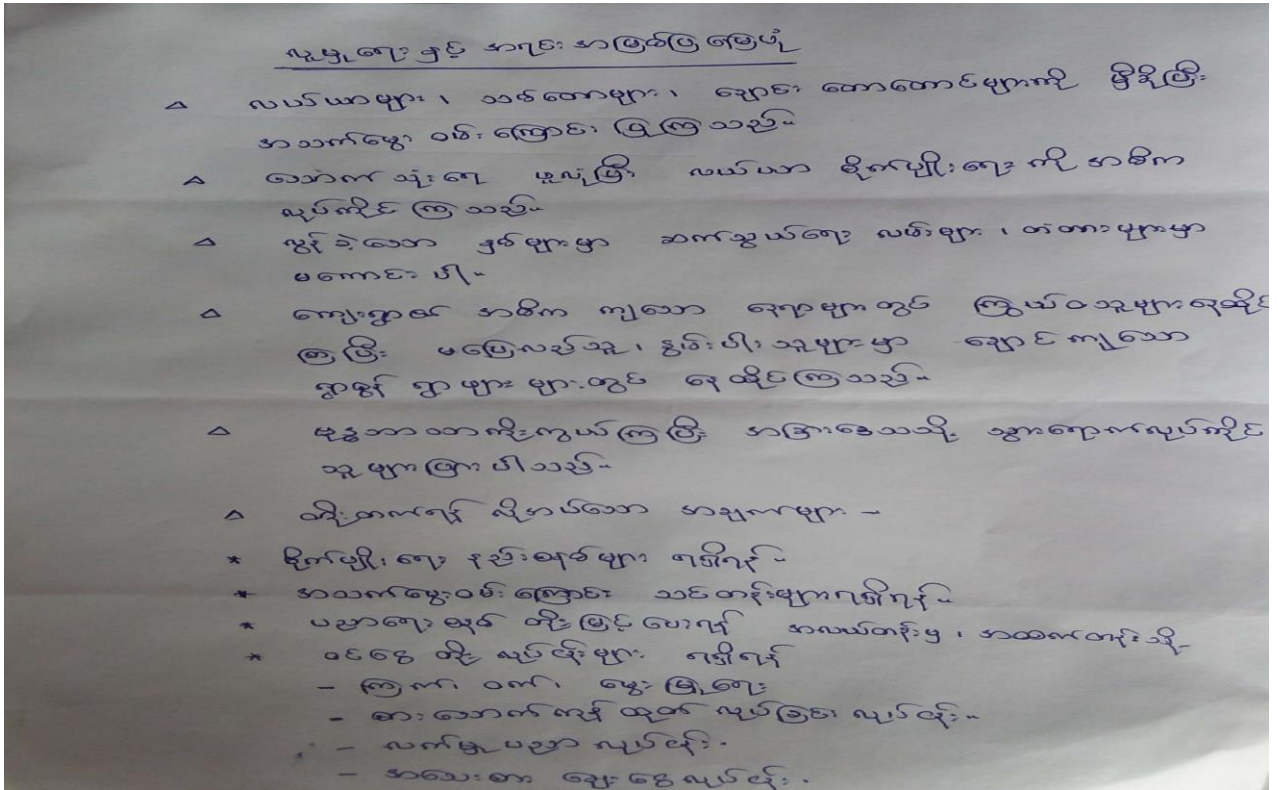 လူမှုရေးနှင့် အရင်းအမြစ်ပြမြေပုံ
△ လယ်ယာများ၊ သစ်တောများ၊ ချောင်း တောတောင်များကို မှီခိုပြီး
အသက်မွေး ဝမ်းကြောင်း ပြုကြသည်။
△ သောက်သုံးရေ ဖူလုံပြီး လယ်ယာ စိုက်ပျိုးရေး ကို အဓိက
လုပ်ကိုင် ကြသည်။
△ လွန်ခဲ့သော နှစ်များမှာ ဆက်သွယ်ရေး လမ်းများ၊ တံတားများမှာ
မကောင်းပါ။
△ ကျေးရွာ၏ အဓိက ကျသော နေရာများတွင် ကြွယ်ဝသူများ နေထိုင်
ကြပြီး မပြေလည်သူ၊ နွမ်းပါးသူများမှာ ချောင်ကျသော
ရွာစွန် ရွာဖျား များတွင် နေထိုင်ကြသည်။
△ ကိုးကွယ်ကြပြီး အခြားဒေသသို့ သွားရောက်လုပ်ကိုင်
သူများ ပါသည်။
△ တိုးတက်ရန် လိုအပ်သော အချက်များ -
* စိုက်ပျိုးရေး နည်းစနစ်များ ရရှိရန်။
* အသက်မွေးဝမ်းကြောင်း သင်တန်းများရရှိရန်။
* ပညာရေးစနစ် တိုးမြှင့်ပေးရန် အလယ်တန်းမှ၊ အထက်တန်းသို့
* ဝင်ငွေ တိုး လုပ်ငန်းများ ရရှိရန်
- ကြက်၊ ဝက်၊ မွေးမြူရေး
- စားသောက်ကုန် ထုတ်လုပ်ခြင်း လုပ်ငန်း။
- လက်မှုပညာ လုပ်ငန်း.
- အသေးစား ချေးငွေလုပ်ငန်း.